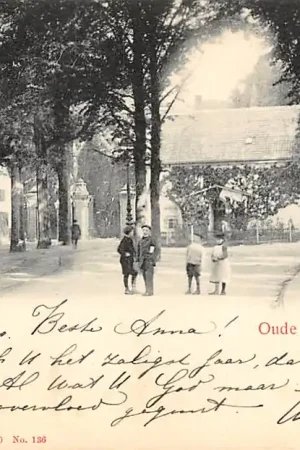 Beste Anna!
Oude
U het zaligst jaar, da
Al wat U God maar
overvloed gegunt.
No. 136